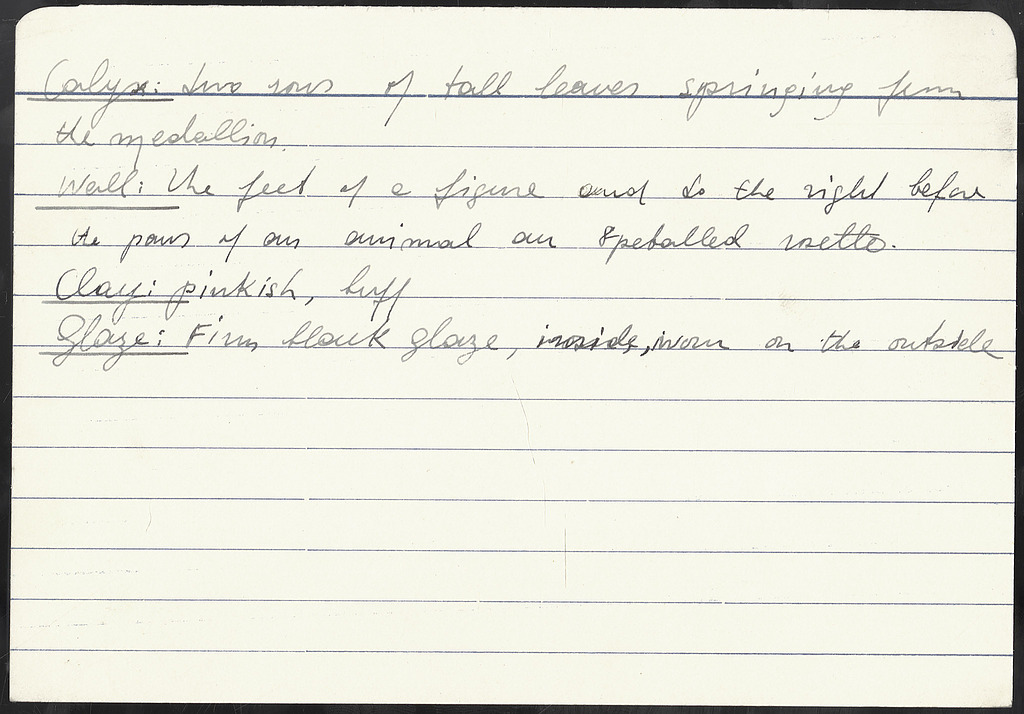 Calyx: two rows of tall leaves springing from
the medallion.
Wall: The feet of a figure and to the right before
the paws of an animal an 8petalled rosette.
Clay: pinkish, buff
Glaze: Firm black glaze, inside, worn on the outside